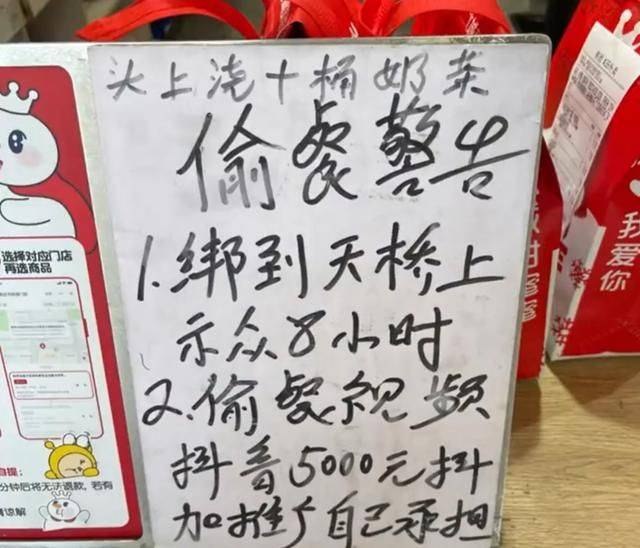 头上浇十桶奶茶
偷餐警告
1.绑到天桥上
示众8小时
2.偷餐视频
抖音5000元抖
加推广自己承担
选择对应门店
再选商品
自提:
分钟后将无法退款,若有
谅解
我
爱
你
蜜
蜜